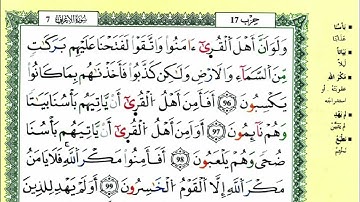 7 سُورَةُ الأَعْرَافِ
حِزْب 17
وَلَوَ اَنَّ أَهْلَ اَلْقُر۪ىٰٓ ءَامَنُواْ وَاتَّقَوْاْ لَفَتَحْنَا عَلَيْهِم بَرَكَٰتٖ
مِّنَ اَلسَّمَآءِ وَالَارْضِ وَلَٰكِن كَذَّبُواْ فَأَخَذْنَٰهُم بِمَا كَانُواْ
يَكْسِبُونَ 96 أَفَأَمِنَ أَهْلُ اُلْقُر۪ىٰٓ أَنْ يَّاتِيَهُم بَأْسُنَا بَيَٰتاٗ
وَهُمْ نَآئِمُونَ 97 أَوَ اَمِنَ أَهْلُ اُلْقُر۪ىٰٓ أَنْ يَّاتِيَهُم بَأْسُنَا
ضُحىٗ وَهُمْ يَلْعَبُونَ 98 أَفَأَمِنُواْ مَكْرَ اَللَّهِ فَلَا يَامَنُ
مَكْرَ اَللَّهِ إِلَّا اَلْقَوْمُ اُلْخَٰسِرُونَ 99 أَوَلَمْ يَهْدِ لِلذِينَ
بَأْسُنَا
عَذَابُنَا
بَيَاتاً
لَيْلاً
مَكْرَ اللهِ